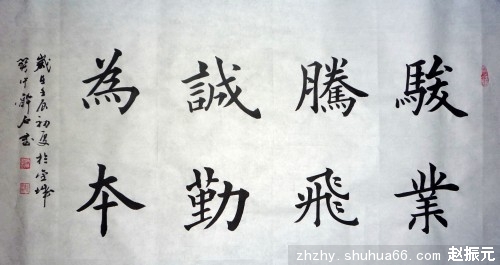 駿業
騰飛
誠勤
為本
歲壬辰初夏於
zhzhy.shuhua66.com 赵振元